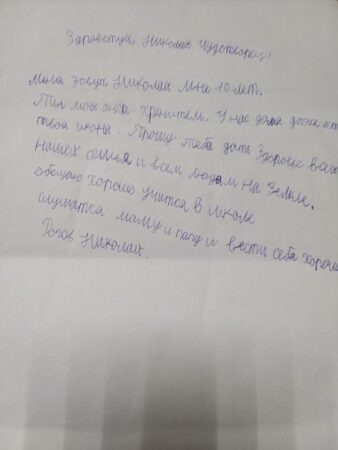 Здравствуй, Николай Чудотворец!
Меня зовут Николай мне 10 лет.
Ты мой ангел-хранитель. У нас дома даже есть
твоя икона. Прошу тебя дать здоровье всей
нашей семье и всем людям на Земле.
обещаю хорошо учится в школе
слушатся маму и папу и вести себя хорошо
Николай.